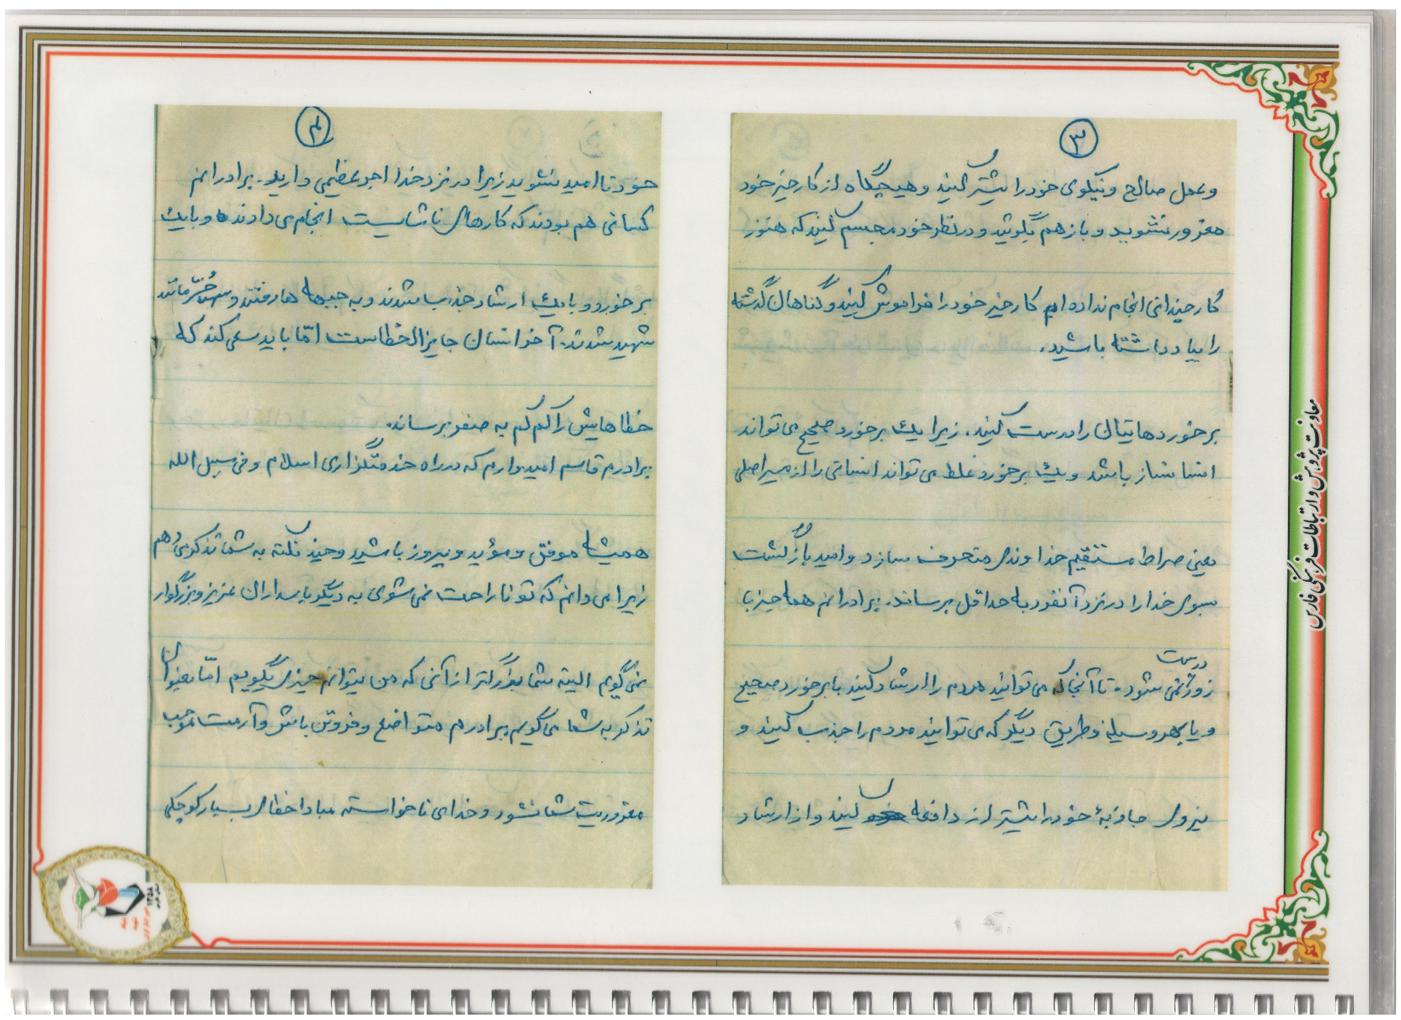 ۳
وعمل صالح و نیکوی خود را بیشتر کنید وهیچگاه از کار خیر خود
مغرور نشوید و باز هم بگوئید و در نظر خود مجسم کنید که هنوز
کار خیر انی انجام نداده ام کار خیر خود را فراموش کنید و گناهان گذشته
را بیاد داشته باشید.
برخوردهایتان را درست کنید. زیرا یک برخورد صحیح می تواند
انسانساز باشد و یک برخورد غلط می تواند انسانی را از مسیر اصلی
یعنی صراط مستقیم خداوندی منحرف سازد و امید بازگشت
بسوی خدا را در نزد آنفرد به حداقل برساند. برادرانم همه چیز با
زور درست نمی شود. تا آنجا که می توانید مردم را ارشاد کنید با برخورد صحیح
و یا بهر وسیله و طریق دیگر که می توانید مردم را جذب کنید و
نیروی جاذبهٔ خود را بیشتر از دافعه کنید و از ارشاد
۴
خود ناامید نشوید زیرا در نزد خدا اجر عظیمی دارید. برادرانم
کسانی هم بودند که کارهای ناشایست انجام می دادند و با یک
برخورد و با یک ارشاد جذب شدند و به جبهه ها رفتند و
شهید شدند. آخر انسان جایز الخطاست امّا باید سعی کند که
خطاهایش را کم کم به صفر برساند.
برادرم قاسم امیدوارم که در راه خدمتگزاری اسلام و فی سبیل الله
همیشه موفق و مؤید و پیروز باشید و چند نکته به شما تذکر می دهم
زیرا می دانم که تو ناراحت نمی شوی به دیگر پاسداران عزیز و بزرگوار
نمی گویم البته شما بزرگتر از آنی که من بتوانم چیزی بگویم امّا بعنوان
تذکر به شما می گویم برادرم متواضع و فروتن باش و آرمت موجب
مغروریت شما نشود و خدای ناخواسته مبادا خطای بسیار کوچکی
معاونت پژوهش و ارتباطات فرهنگی فارس